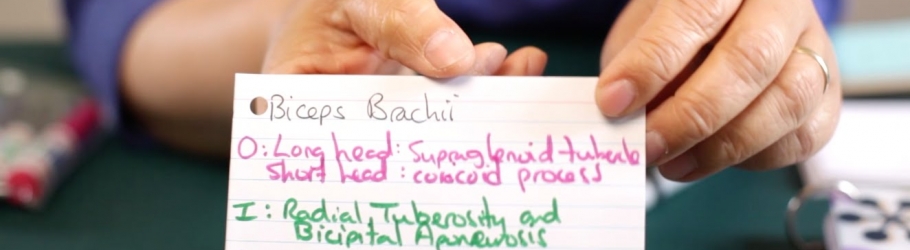 Biceps Brachii
O: Long head: Supraglenoid tubercle
Short head: coracoid process
I: Radial Tuberosity and
Bicipital Aponeurosis